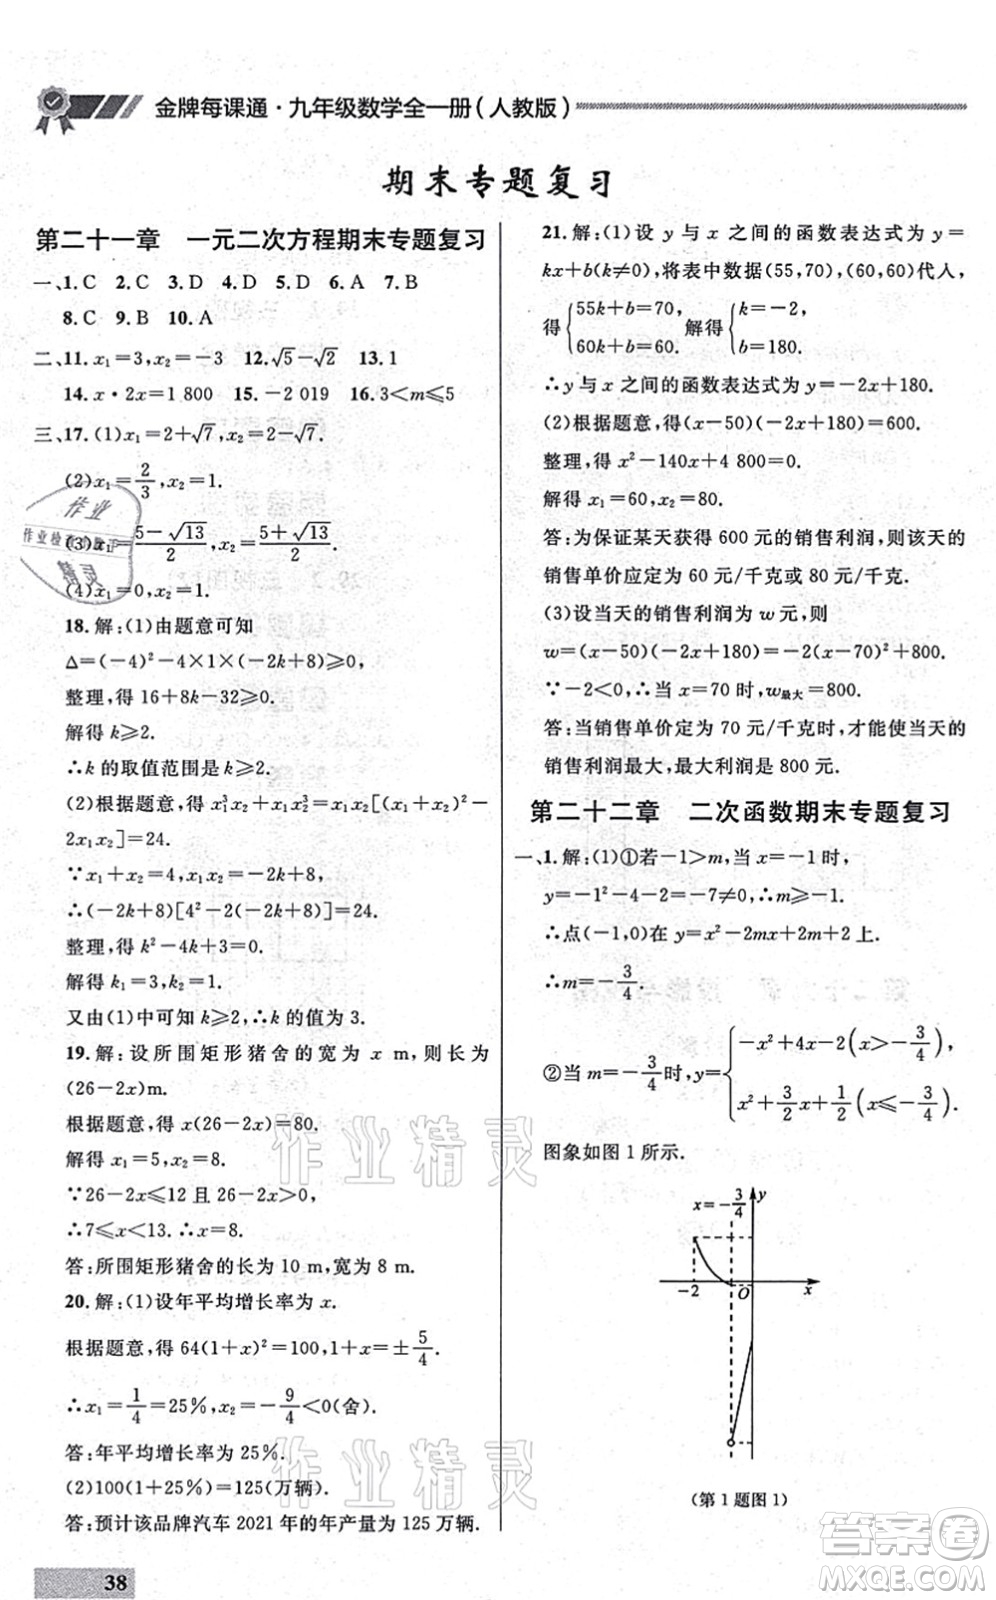 金牌每课通·九年级数学全一册(人教版)
期末专题复习
第二十一章 一元二次方程期末专题复习
一、1. C 2. C 3. D 4. D 5. D 6. A 7. B
8. C 9. B 10. A
二、11. x₁=3,x₂=-3 12. √5-√2 13. 1
14. x·2x=1 800 15. -2 019 16. 3<m≤5
三、17. (1)x₁=2+√7,x₂=2-√7.
(2)x₁=2/3,x₂=1.
(3)x₁=(5-√13)/2,x₂=(5+√13)/2.
(4)x₁=0,x₂=1.
18. 解:(1)由题意可知
Δ=(-4)²-4×1×(-2k+8)≥0,
整理,得 16+8k-32≥0.
解得 k≥2.
∴k 的取值范围是 k≥2.
(2)根据题意,得 x₁³x₂+x₁x₂³=x₁x₂[(x₁+x₂)²-
2x₁x₂]=24.
∵x₁+x₂=4,x₁x₂=-2k+8,
∴(-2k+8)[4²-2(-2k+8)]=24.
整理,得 k²-4k+3=0.
解得 k₁=3,k₂=1.
又由(1)中可知 k≥2,∴k 的值为 3.
19. 解:设所围矩形猪舍的宽为 x m,则长为
(26-2x)m.
根据题意,得 x(26-2x)=80.
解得 x₁=5,x₂=8.
∵26-2x≤12 且 26-2x>0,
∴7≤x<13. ∴x=8.
答:所围矩形猪舍的长为 10 m,宽为 8 m.
20. 解:(1)设年平均增长率为 x.
根据题意,得 64(1+x)²=100,1+x=±5/4.
∴x₁=1/4=25%,x₂=-9/4<0(舍).
答:年平均增长率为 25%.
(2)100(1+25%)=125(万辆).
答:预计该品牌汽车 2021 年的年产量为 125 万辆.
21. 解:(1)设 y 与 x 之间的函数表达式为 y=
kx+b(k≠0),将表中数据(55,70),(60,60)代人,
得{55k+b=70, 60k+b=60. 解得{k=-2, b=180.
∴y 与 x 之间的函数表达式为 y=-2x+180.
(2)根据题意,得(x-50)(-2x+180)=600.
整理,得 x²-140x+4 800=0.
解得 x₁=60,x₂=80.
答:为保证某天获得 600 元的销售利润,则该天的
销售单价应定为 60 元/千克或 80 元/千克.
(3)设当天的销售利润为 w 元,则
w=(x-50)(-2x+180)=-2(x-70)²+800.
∵-2<0,∴当 x=70 时,w最大=800.
答:当销售单价定为 70 元/千克时,才能使当天的
销售利润最大,最大利润是 800 元.
第二十二章 二次函数期末专题复习
一、1. 解:(1)①若-1>m,当 x=-1 时,
y=-1²-4-2=-7≠0,∴m≥-1.
∴点(-1,0)在 y=x²-2mx+2m+2 上.
∴m=-3/4.
②当 m=-3/4时,y={-x²+4x-2(x>-3/4) x²+3/2x+1/2(x≤-3/4).
图象如图 1 所示.
x=-3/4 y
-2 O x
(第 1 题图 1)
38
作业
作业检查小助手
精灵
作业精灵
作业精灵
答案圈
MXQE.COM